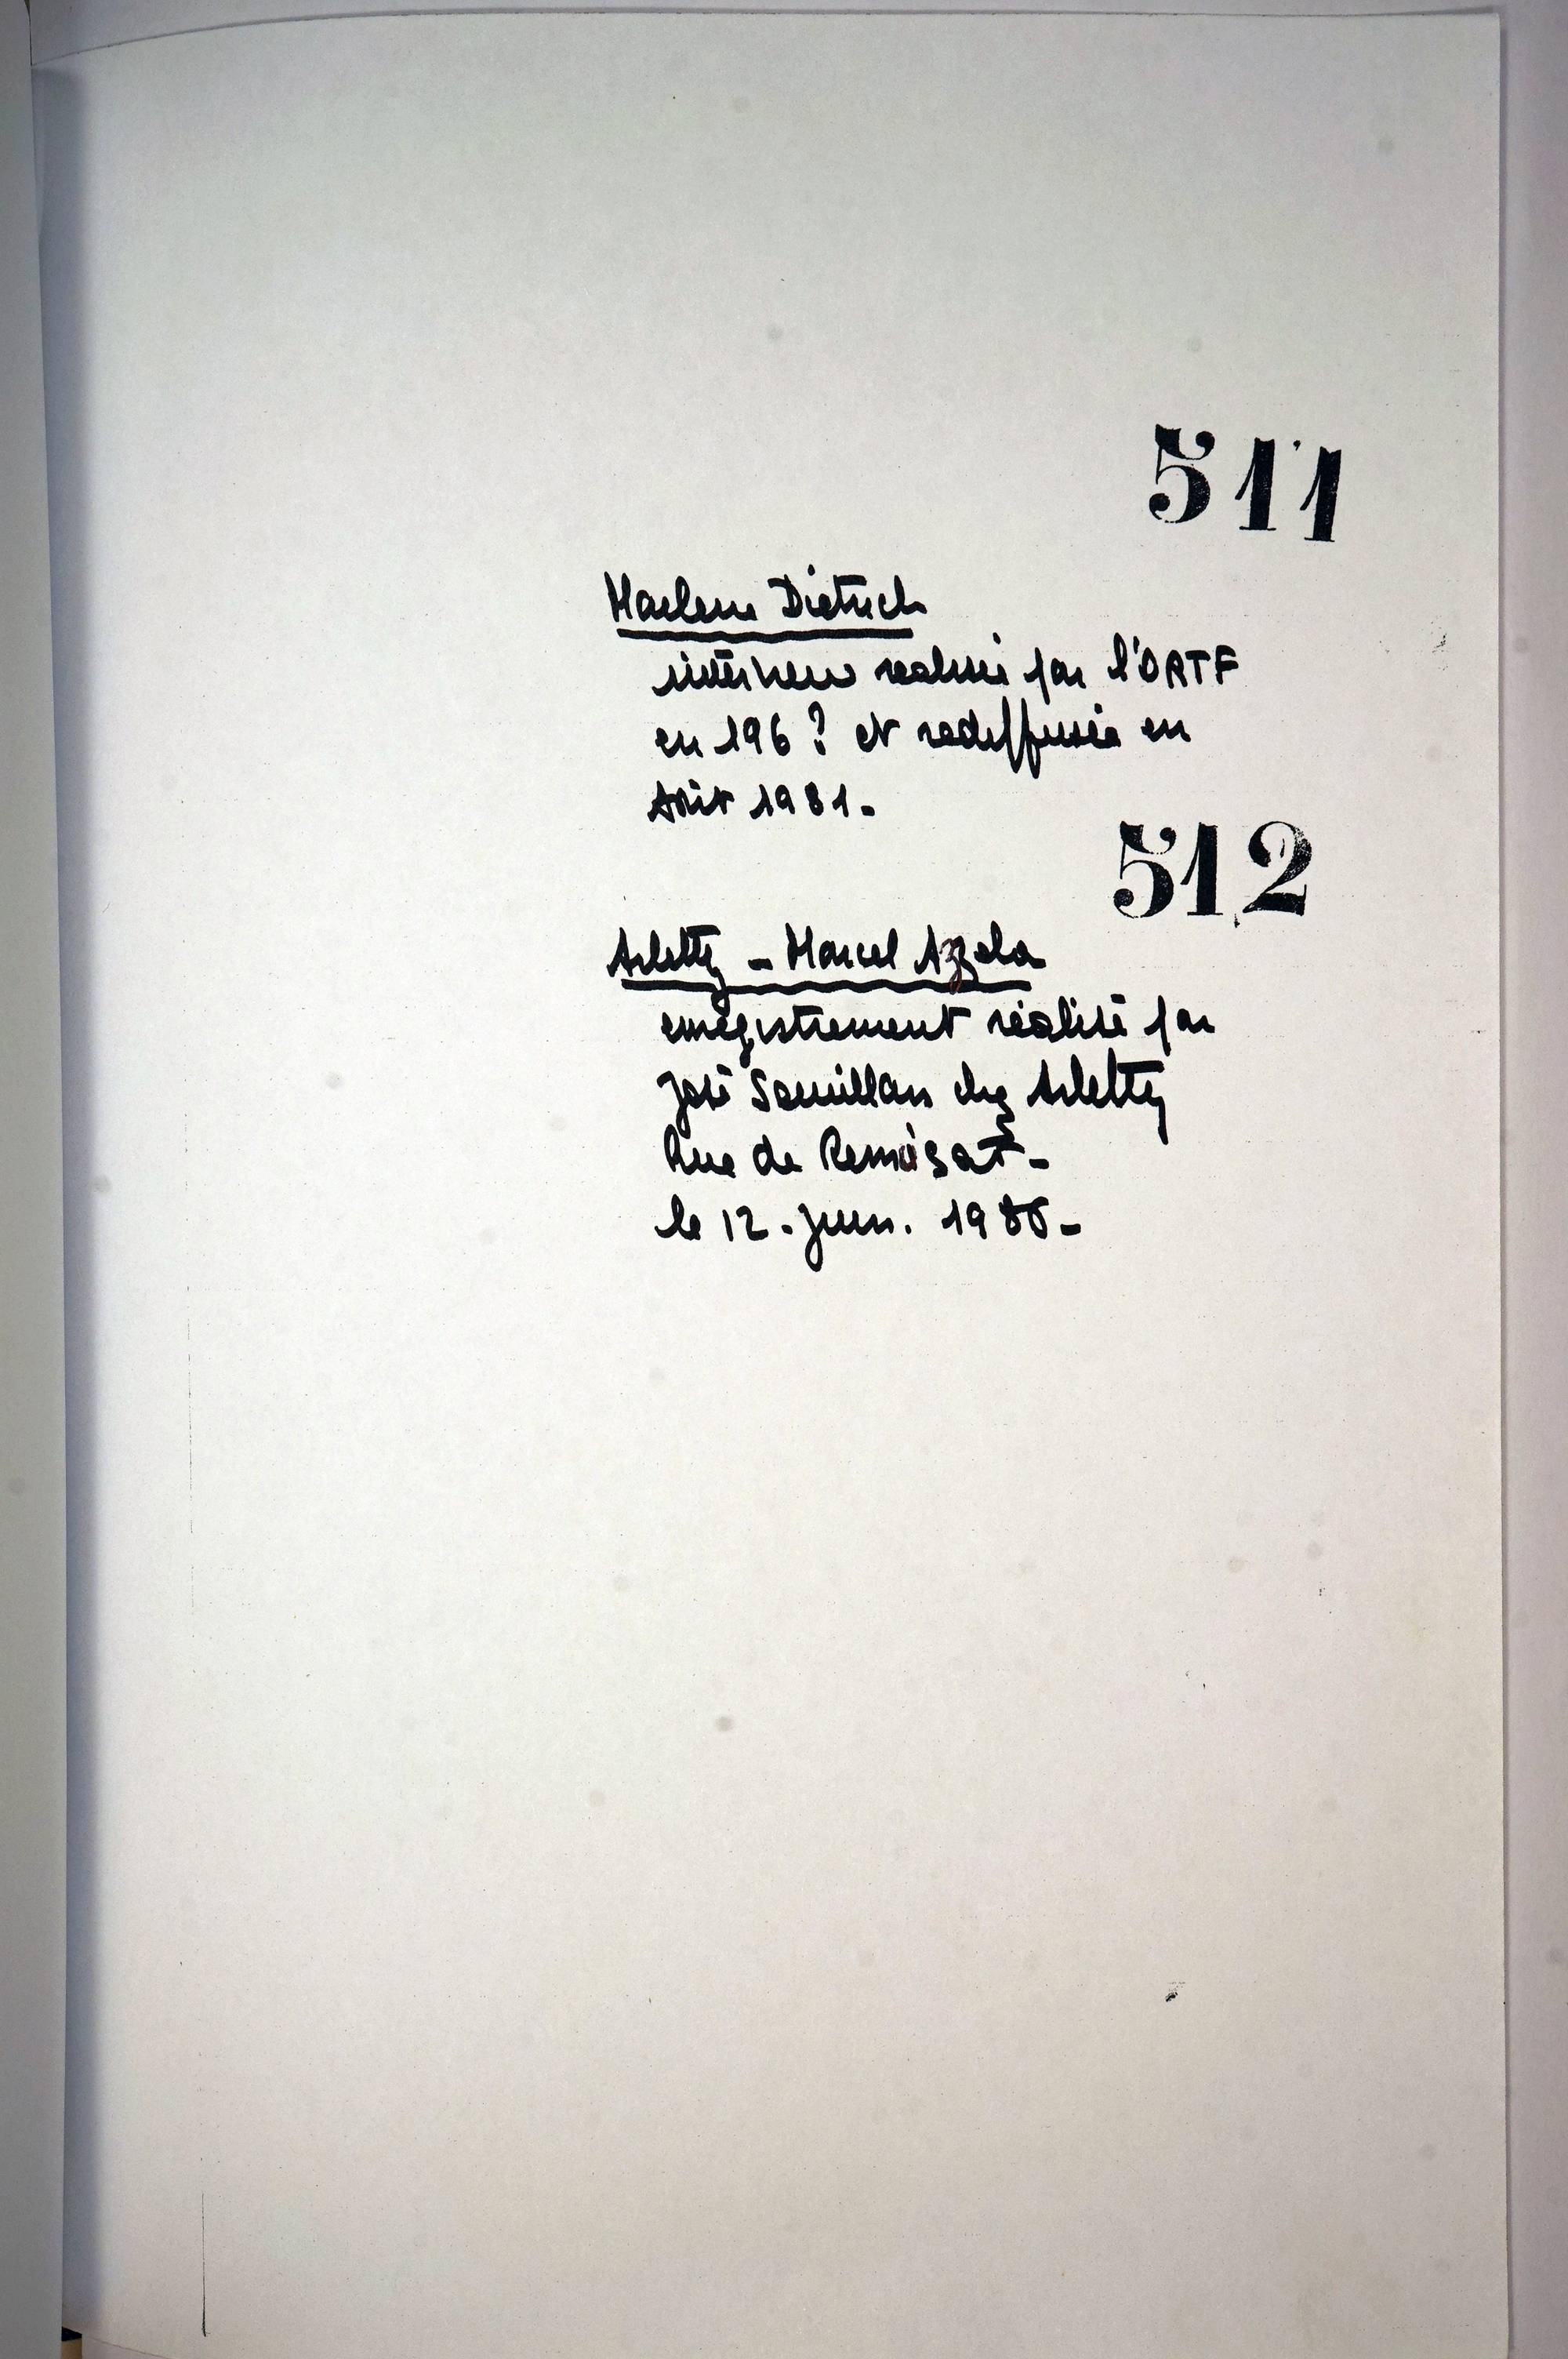 511
Marlene Dietrich
interview realisée par l'ORTF
en 196? et rediffusée en
Août 1981.
512
Arletty - Marcel Azzola
enregistrement réalisé par
José Souillan chez Arletty
Rue de Remusat -
le 12. juin.